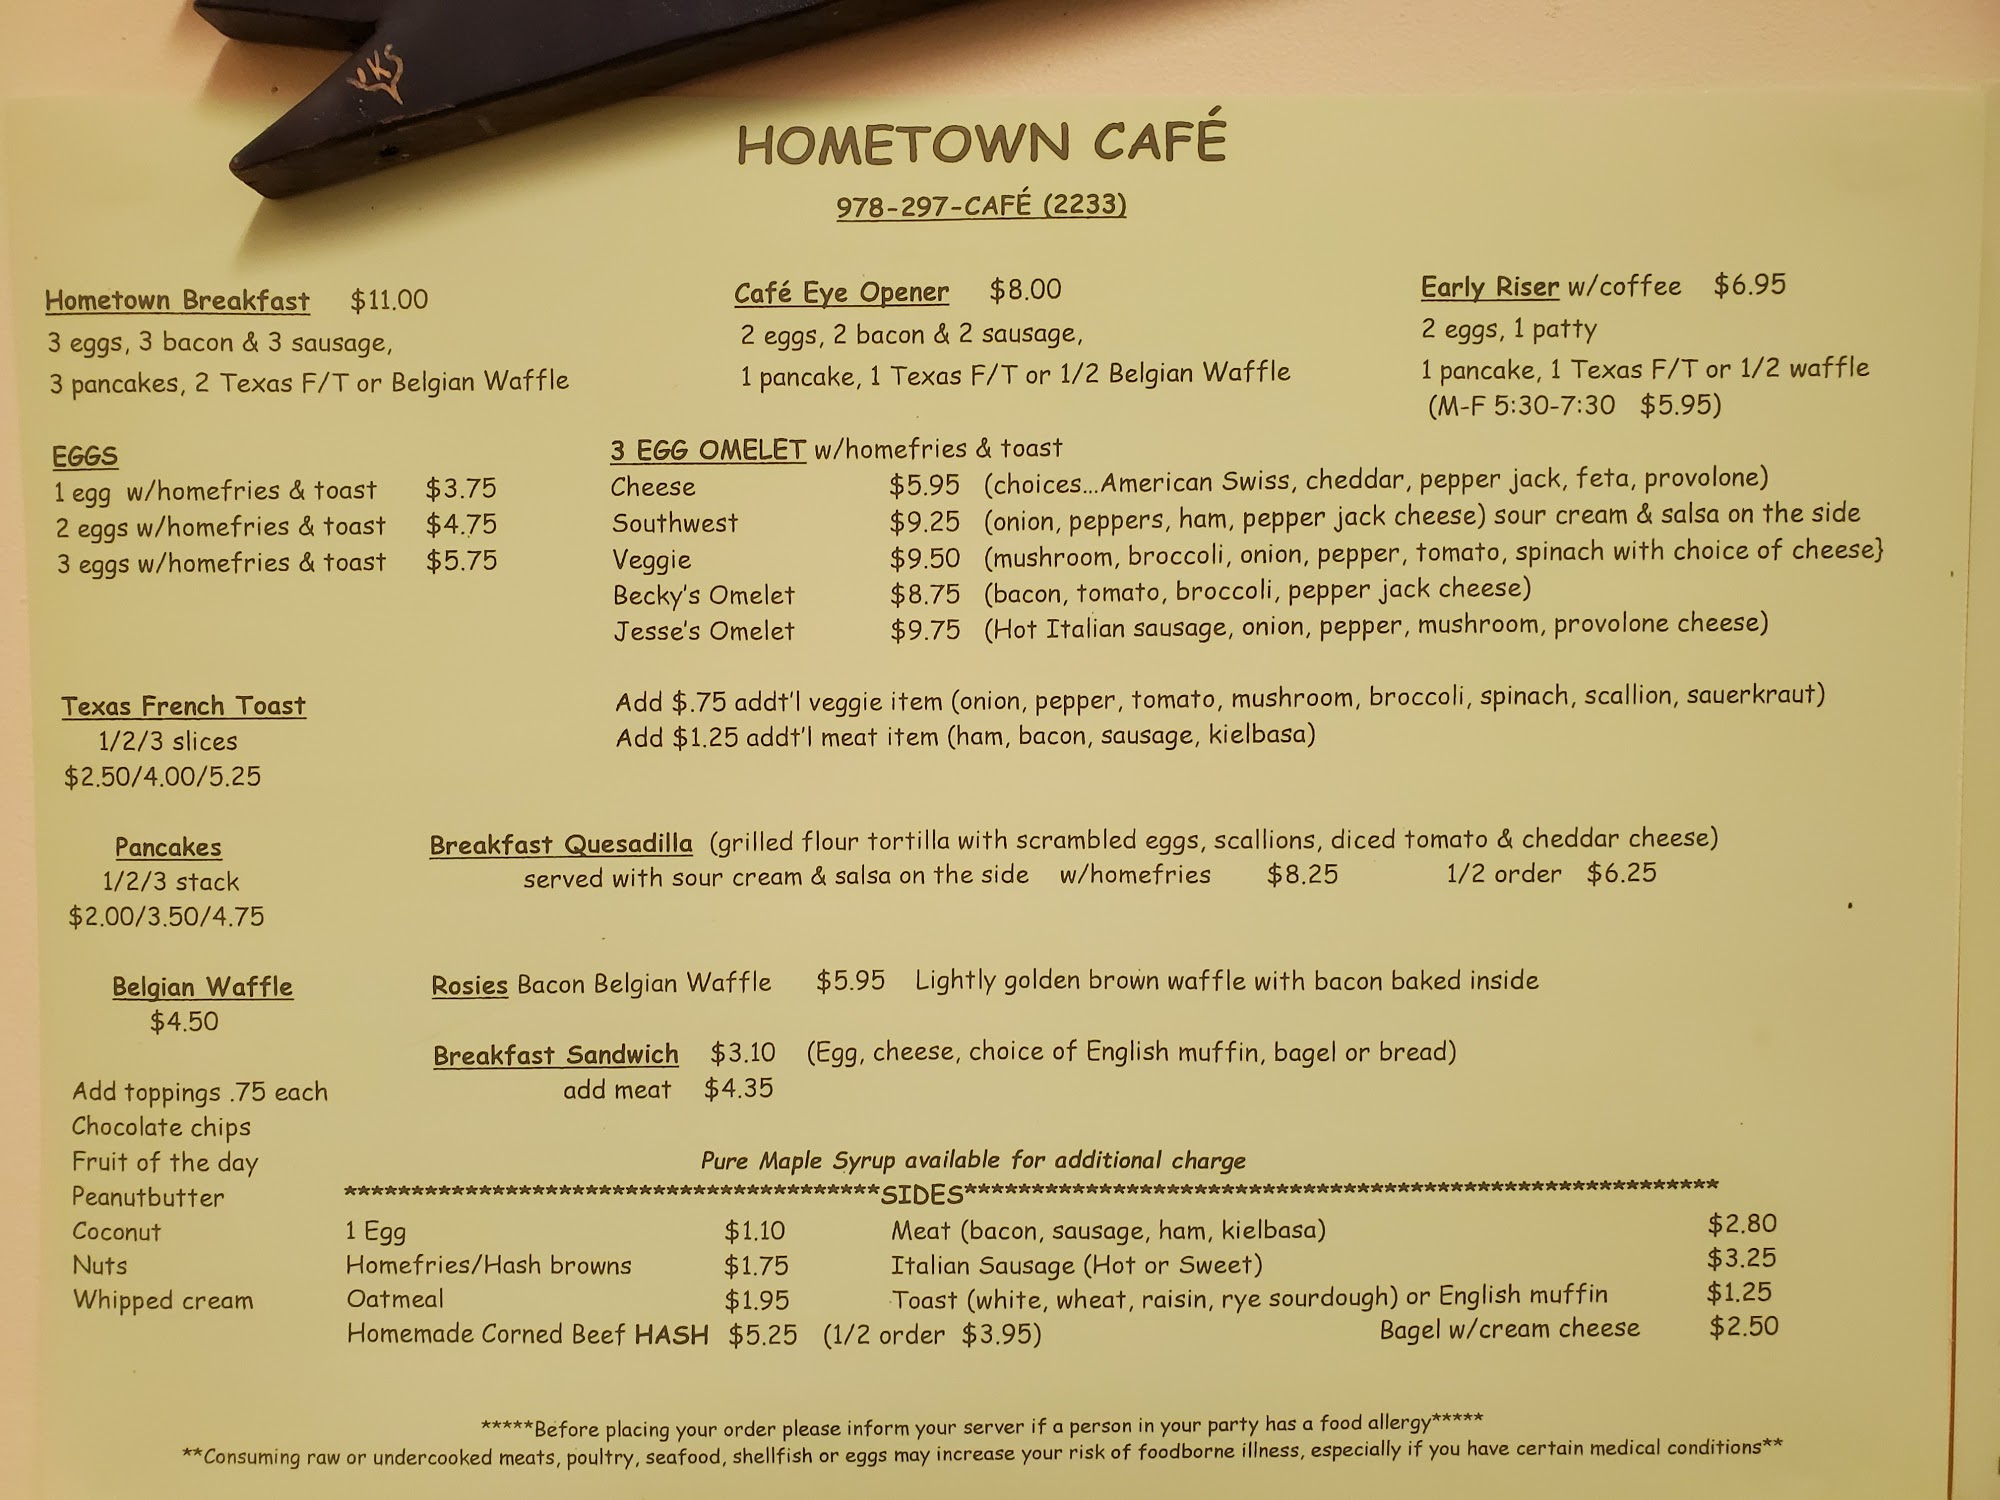 YKS
HOMETOWN CAFÉ
978-297-CAFÉ (2233)
Hometown Breakfast $11.00
3 eggs, 3 bacon & 3 sausage,
3 pancakes, 2 Texas F/T or Belgian Waffle
Café Eye Opener $8.00
2 eggs, 2 bacon & 2 sausage,
1 pancake, 1 Texas F/T or 1/2 Belgian Waffle
Early Riser w/coffee $6.95
2 eggs, 1 patty
1 pancake, 1 Texas F/T or 1/2 waffle
(M-F 5:30-7:30 $5.95)
EGGS
1 egg w/homefries & toast $3.75
2 eggs w/homefries & toast $4.75
3 eggs w/homefries & toast $5.75
3 EGG OMELET w/homefries & toast
Cheese $5.95 (choices...American Swiss, cheddar, pepper jack, feta, provolone)
Southwest $9.25 (onion, peppers, ham, pepper jack cheese) sour cream & salsa on the side
Veggie $9.50 (mushroom, broccoli, onion, pepper, tomato, spinach with choice of cheese}
Becky's Omelet $8.75 (bacon, tomato, broccoli, pepper jack cheese)
Jesse's Omelet $9.75 (Hot Italian sausage, onion, pepper, mushroom, provolone cheese)
Add $.75 addt'l veggie item (onion, pepper, tomato, mushroom, broccoli, spinach, scallion, sauerkraut)
Add $1.25 addt'l meat item (ham, bacon, sausage, kielbasa)
Texas French Toast
1/2/3 slices
$2.50/4.00/5.25
Pancakes
1/2/3 stack
$2.00/3.50/4.75
Belgian Waffle
$4.50
Add toppings .75 each
Chocolate chips
Fruit of the day
Peanutbutter
Coconut
Nuts
Whipped cream
Breakfast Quesadilla (grilled flour tortilla with scrambled eggs, scallions, diced tomato & cheddar cheese)
served with sour cream & salsa on the side w/homefries $8.25 1/2 order $6.25
Rosies Bacon Belgian Waffle $5.95 Lightly golden brown waffle with bacon baked inside
Breakfast Sandwich $3.10 (Egg, cheese, choice of English muffin, bagel or bread)
add meat $4.35
Pure Maple Syrup available for additional charge
****************************************SIDES********************************************************
1 Egg $1.10 Meat (bacon, sausage, ham, kielbasa) $2.80
Homefries/Hash browns $1.75 Italian Sausage (Hot or Sweet) $3.25
Oatmeal $1.95 Toast (white, wheat, raisin, rye sourdough) or English muffin $1.25
Homemade Corned Beef HASH $5.25 (1/2 order $3.95) Bagel w/cream cheese $2.50
*****Before placing your order please inform your server if a person in your party has a food allergy*****
**Consuming raw or undercooked meats, poultry, seafood, shellfish or eggs may increase your risk of foodborne illness, especially if you have certain medical conditions**